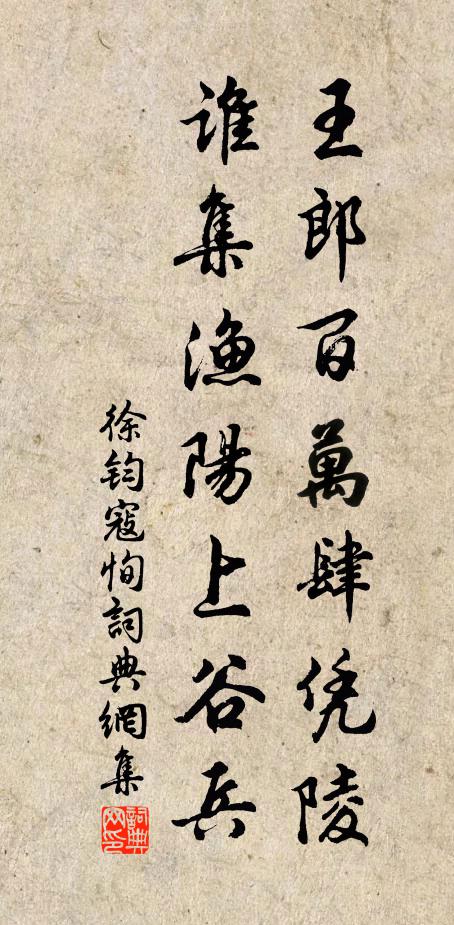 王郎百萬肆凭陵
誰集漁陽上谷兵
徐鈞寇恂詞典網集
詞典網印